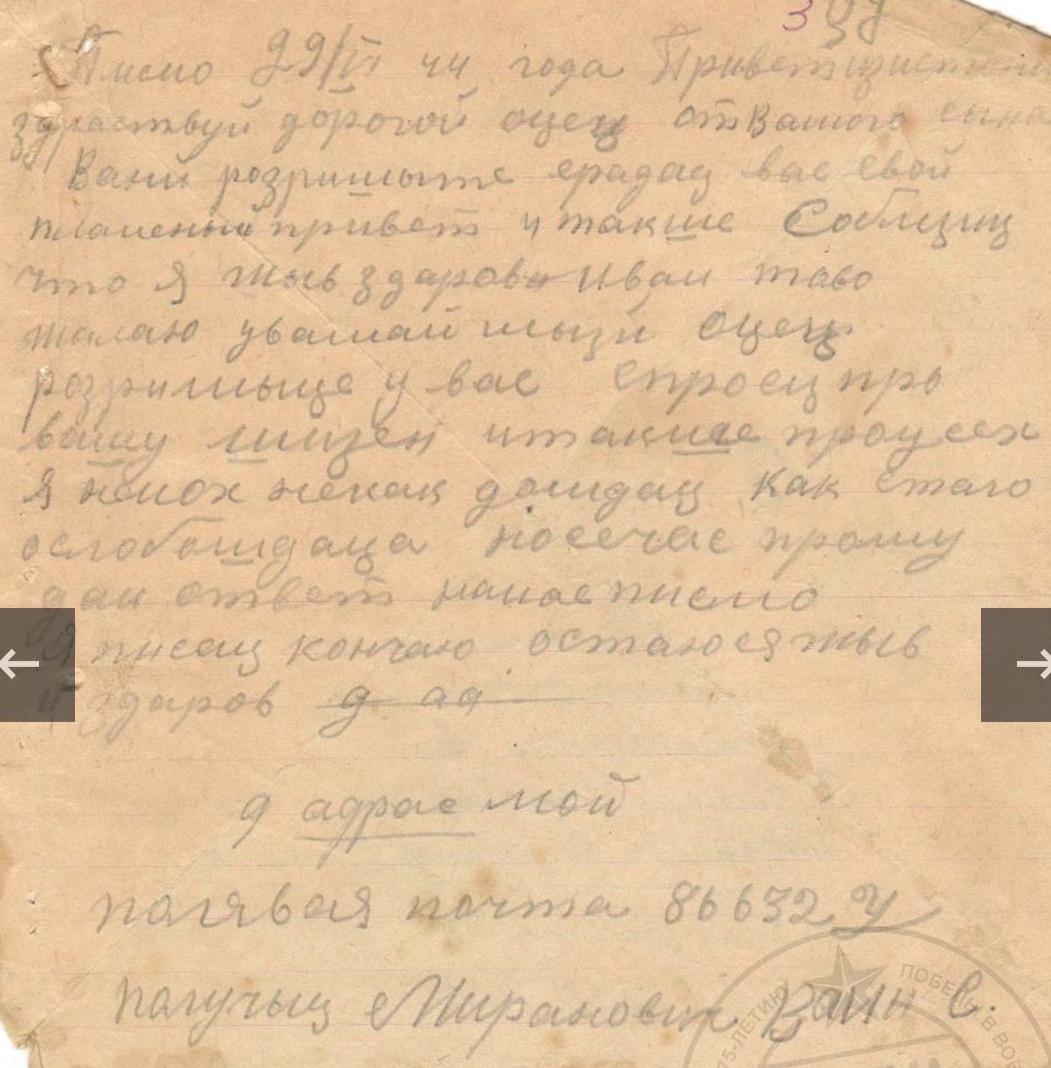 Писмо 29/VI 44 года Привет
здраствуй дорогой оцец от Вашого сына
Вани розришыте ерадац вас свой
пламеный привет и такше Соблщиц
что я жыв здаров и Вам таво
желаю уважаймыци оцец
розришыце у вас спросиц про
вашу шизен и такшае про усех
я немох некак дошдац как етаго
ослобошдаца посечас прошу
дац ответ на мое писмо
Я писац кончаю остаюся жыв
и здаров д ад
д адрас мой
палявая почта 86632 У
палучыц Миранович Вани С.
75-ЛЕТИЮ ПОБЕДЫ В